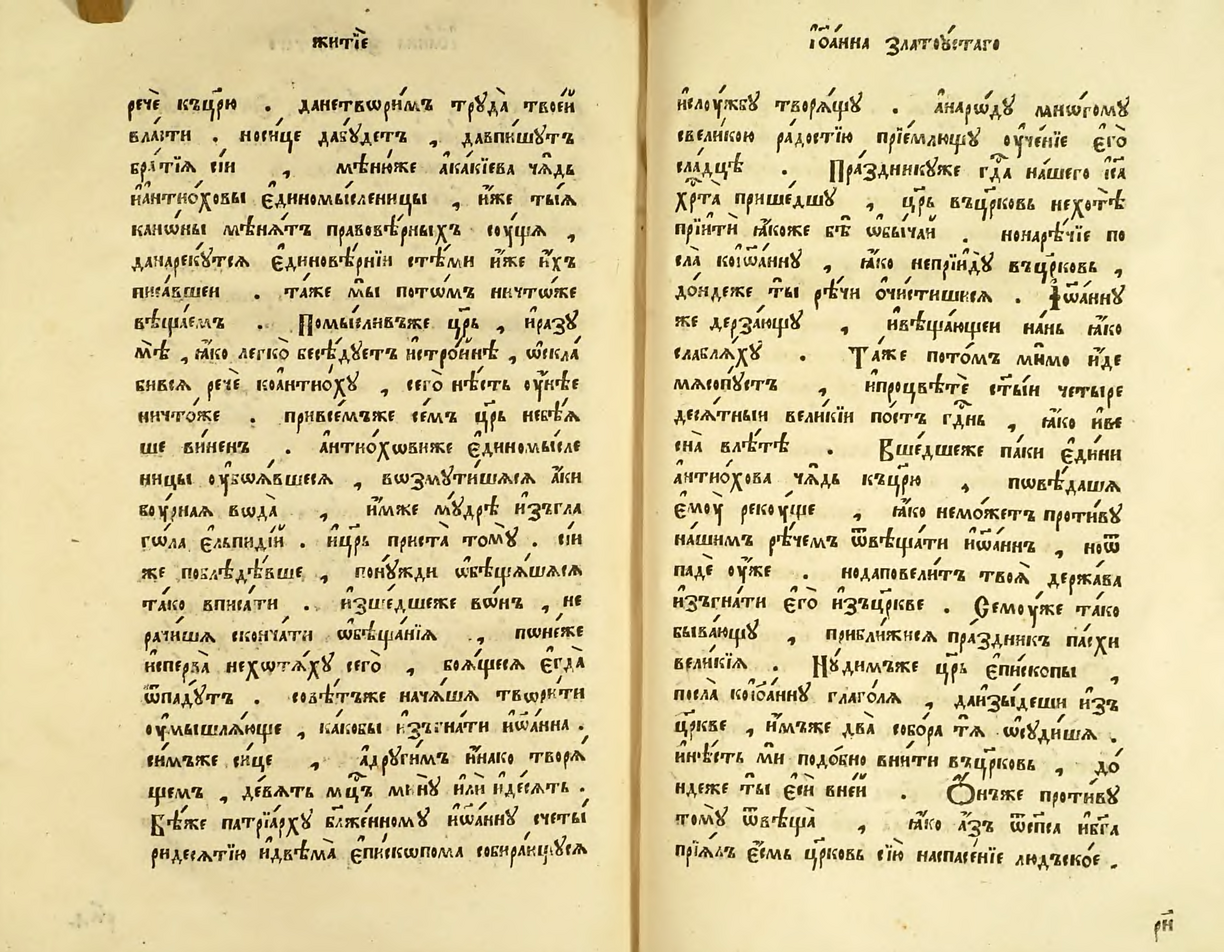 житїе
речѐ къцр҃ю . данетворѝмъ трꙋда̀ твоеѝ
вла́сти . но сице дабꙋ́детъ , давпишꙋтъ
бра́тїѧ сїи , мѣнюже а҆ка́кїева ча̑дь
и҆антио́ховы є҆диномы́сленицы , и҆̀же ты́ѧ
канѡ́ны мѣнѧ́тъ правовѣ́рныхъ сꙋщѧ ,
данарекꙋ́тсѧ є҆диновѣ́рнїи стѣ́ми и҆̀же и҆̀хъ
писа́вшеи . та́же мы̀ пото́мъ ничто́же
вѣща́емъ . Помы́сливъже цр҃ь , и҆разꙋ
мѣ̀ , ꙗ҆́ко легко̀ бесѣ́дꙋетъ и҆стро́йнѣ , ѡ҆скла
би́всѧ речѐ коантио́хꙋ , сего̀ нѣ́сть ᲂу҆́нѣе
ничто́же . привсе́мъже се́мъ цр҃ь небѣ́ѧ
ше ви́ненъ . а҆нтио́хѡвиже є҆диномы́сле
ницы ᲂу҆боѧ́вшеесѧ , вѡзмꙋти́шасѧ а҆́ки
бꙋ́рнаѧ вѡда̀ , и҆́мже мꙋ́дрѣ и҆зъгла
гѡ́ла є҆лпи́дїй . и҆цр҃ь приста̀ томꙋ̀ . сїи
же поблѣдѣ́вше , понꙋжди ѡ҆бѣща́шасѧ
та́ко вписа́ти . и҆зше́дшеже во́нъ , не
рачи́ша сконча́ти ѡ҆бѣща́нїѧ , поне́же
и҆спе́рва нехотѧ́хꙋ сего̀ , боѧ́щесѧ є҆гда̀
ѿпадꙋ́тъ . совѣ́тъже нача́ша твори́ти
ᲂу҆мышлѧ́юще , ка́кобы и҆зъгна́ти и҆ѡа́нна .
си́мъже си́це , а҆дрꙋги́мъ и҆на́ко творѧ́
щемъ , де́вѧть мц҃ъ минꙋ̀ и҆лѝ и҆де́сѧть .
Бѣ́же патрїа́рхꙋ бл҃же́нномꙋ и҆ѡа́ннꙋ счеты́
ридесѧтїю и҆двѣма̀ є҆пи́скопома собира́ющꙋсѧ
і҆ѡа́нна златоꙋ́стаго
и҆слꙋ́жбꙋ творѧ́щꙋ . а҆наро́дꙋ мно́гомꙋ
свели́кою ра́достїю прїе́млющꙋ ᲂу҆че́нїе є҆го̀
сла́дцѣ . Пра́здникꙋже гд҇а на́шего і҆са
хр҇та̀ прише́дшꙋ , цр҃ь въцр҃ковь нехотѣ̀
прїитѝ ꙗ҆́коже бѣ̀ ѡ҆бы́чай . нонарѣ́чїе по
сла̀ коїѡа́ннꙋ , ꙗ҆́ко неприидꙋ̀ въцр҃ковь ,
до́ндеже ты̀ рѣ́чи ѡ҆чи́стишисѧ . І҆ѡа́ннꙋ
же дерза́ющꙋ , и҆вѣща́ющеи на́нь ꙗ҆́ко
слаблѧ́хꙋ . Та́же пото́мъ ми́мо и҆́де
мѧсопꙋ́стъ , и҆процвѣ́те ст҃ы́и четы́ре
десѧ́тныи вели́кїи по́стъ гд҇нь , ꙗ҆́ко и҆ве
сна̀ влѣ́тѣ . Вше́дшеже па́ки є҆ди́ни
а҆нтио́хова ча̑дь къцр҃ю , повѣ́даша
є҆мꙋ̀ рекꙋ́ще , ꙗ҆́ко немо́жетъ проти́вꙋ
на́шимъ рѣ́чемъ ѿвѣща́ти и҆ѡа́ннъ , ноѿ
паде ᲂу҆́же . нодаповели́тъ твоѧ̀ держа́ва
и҆зъгна́ти є҆го̀ и҆зъцр҃кве . Семꙋ́же та́ко
быва́ющꙋ , прибли́жисѧ пра́здникъ па́схи
вели́кїѧ . Нꙋ́димъже цр҃ь є҆пи́скопы ,
посла̀ коїѡа́ннꙋ глаго́лѧ , даизы́деши и҆зъ
цр҃кве , и҆́мъже два̀ собо́ра тѧ̀ ѡ҆сꙋди́ша .
и҆нѣ́сть мѝ подо́бно вни́ти въцр҃ковь , до́
ндеже ты̀ є҆сѝ вне́й . Ѻ҆́нъже проти́вꙋ
томꙋ̀ ѿвѣща̀ , ꙗ҆́ко а҆́зъ ѿсп҃са и҆бг҃а
прїѧ́лъ є҆́смь цр҃ковь сїю̀ наспасе́нїе лю́дьское .
рн҃